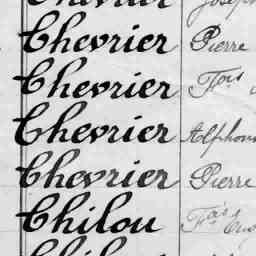 Chevrier Joseph
Chevrier Pierre
Chevrier Fçois
Chevrier Alphons
Chevrier Pierre
Chilou Fçois